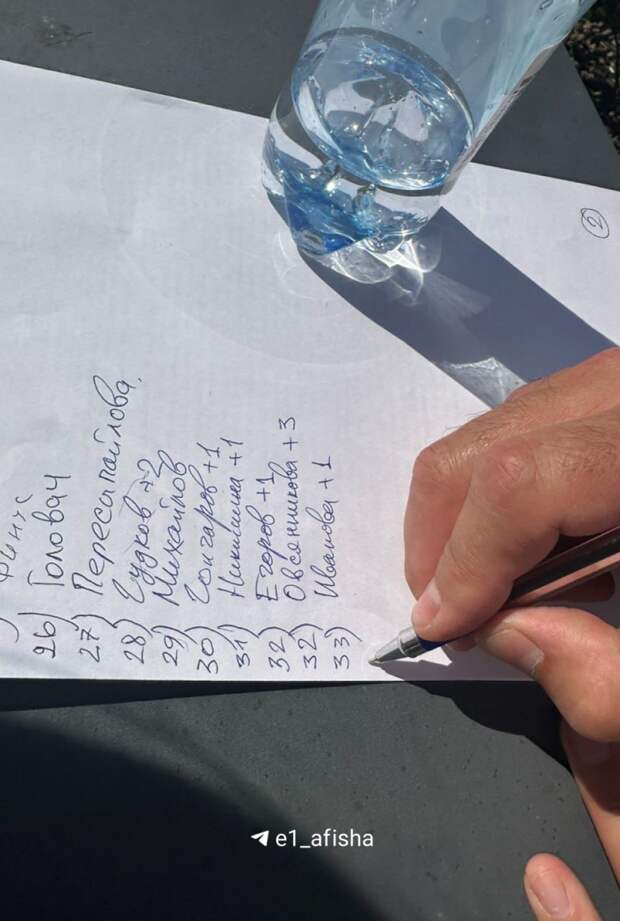 ②
Финхс
26) Головач
27) Пересыпайлова.
28) Гудков +2
29) Михайлов
30) Гончаров +1
31) Никишина +1
32) Егоров +1
32) Овсянникова +3
33) Иванова +1
e1_afisha